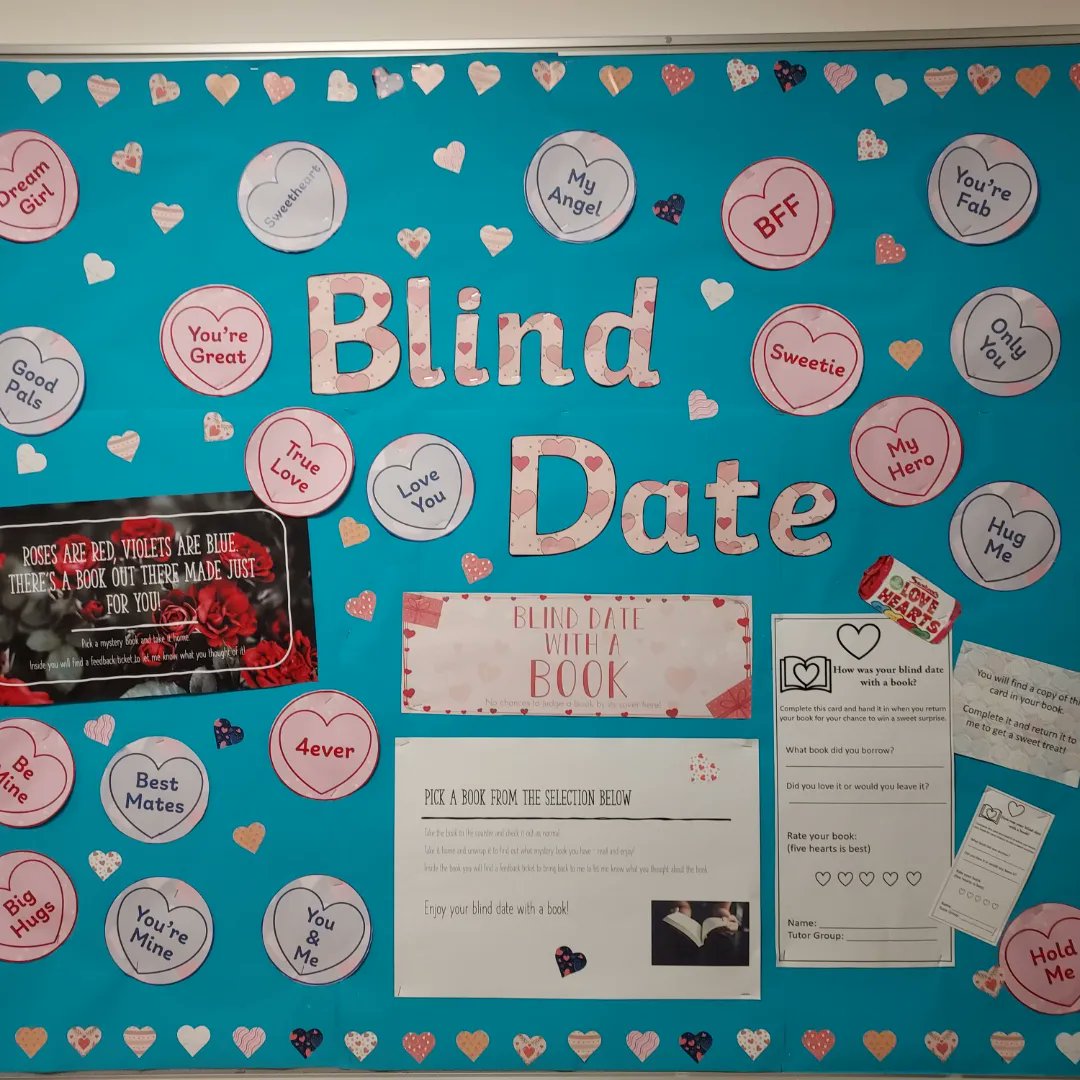 Dream
Girl
Sweetheart
My
Angel
BFF
You're
Fab
Blind
You're
Great
Good
Pals
Sweetie
Only
You
True
Love
Love
You
Date
My
Hero
Hug
Me
ROSES ARE RED, VIOLETS ARE BLUE.
THERE'S A BOOK OUT THERE MADE JUST
FOR YOU!
Pick a mystery book and take it home.
Inside you will find a feedback ticket to let me know what you thought of it!
BLIND DATE
WITH A
BOOK
No chances to judge a book by its cover here!
Swizzels
LOVE
HEARTS
How was your blind date
with a book?
Complete this card and hand it in when you return
your book for your chance to win a sweet surprise.
What book did you borrow?
Did you love it or would you leave it?
Rate your book:
(five hearts is best)
Name:
Tutor Group:
You will find a copy of this
card in your book.
Complete it and return it to
me to get a sweet treat!
Be
Mine
Best
Mates
4ever
PICK A BOOK FROM THE SELECTION BELOW
Take the book to the counter and check it out as normal.
Take it home and unwrap it to find out what mystery book you have - read and enjoy!
Inside the book you will find a feedback ticket to bring back to me to let me know what you thought about the book.
Enjoy your blind date with a book!
How was your blind date
with a book?
What book did you borrow?
Did you love it or would you leave it?
Rate your book:
(five hearts is best)
Name:
Tutor Group:
Big
Hugs
You're
Mine
You
&
Me
Hold
Me